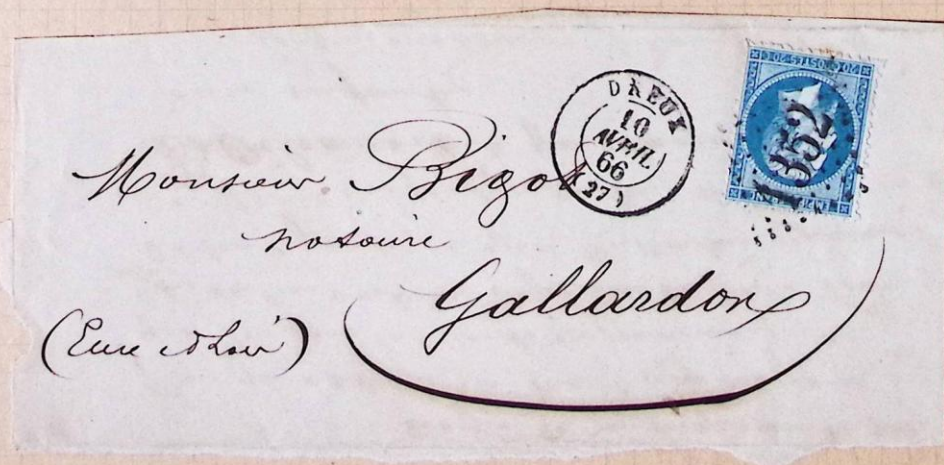 DREUX
10
AVRIL
66
(27)
1352
20 C POSTES 20 C
EMP FRANC
Monsieur Bigot
notaire
Gallardon
(Eure et Loir)